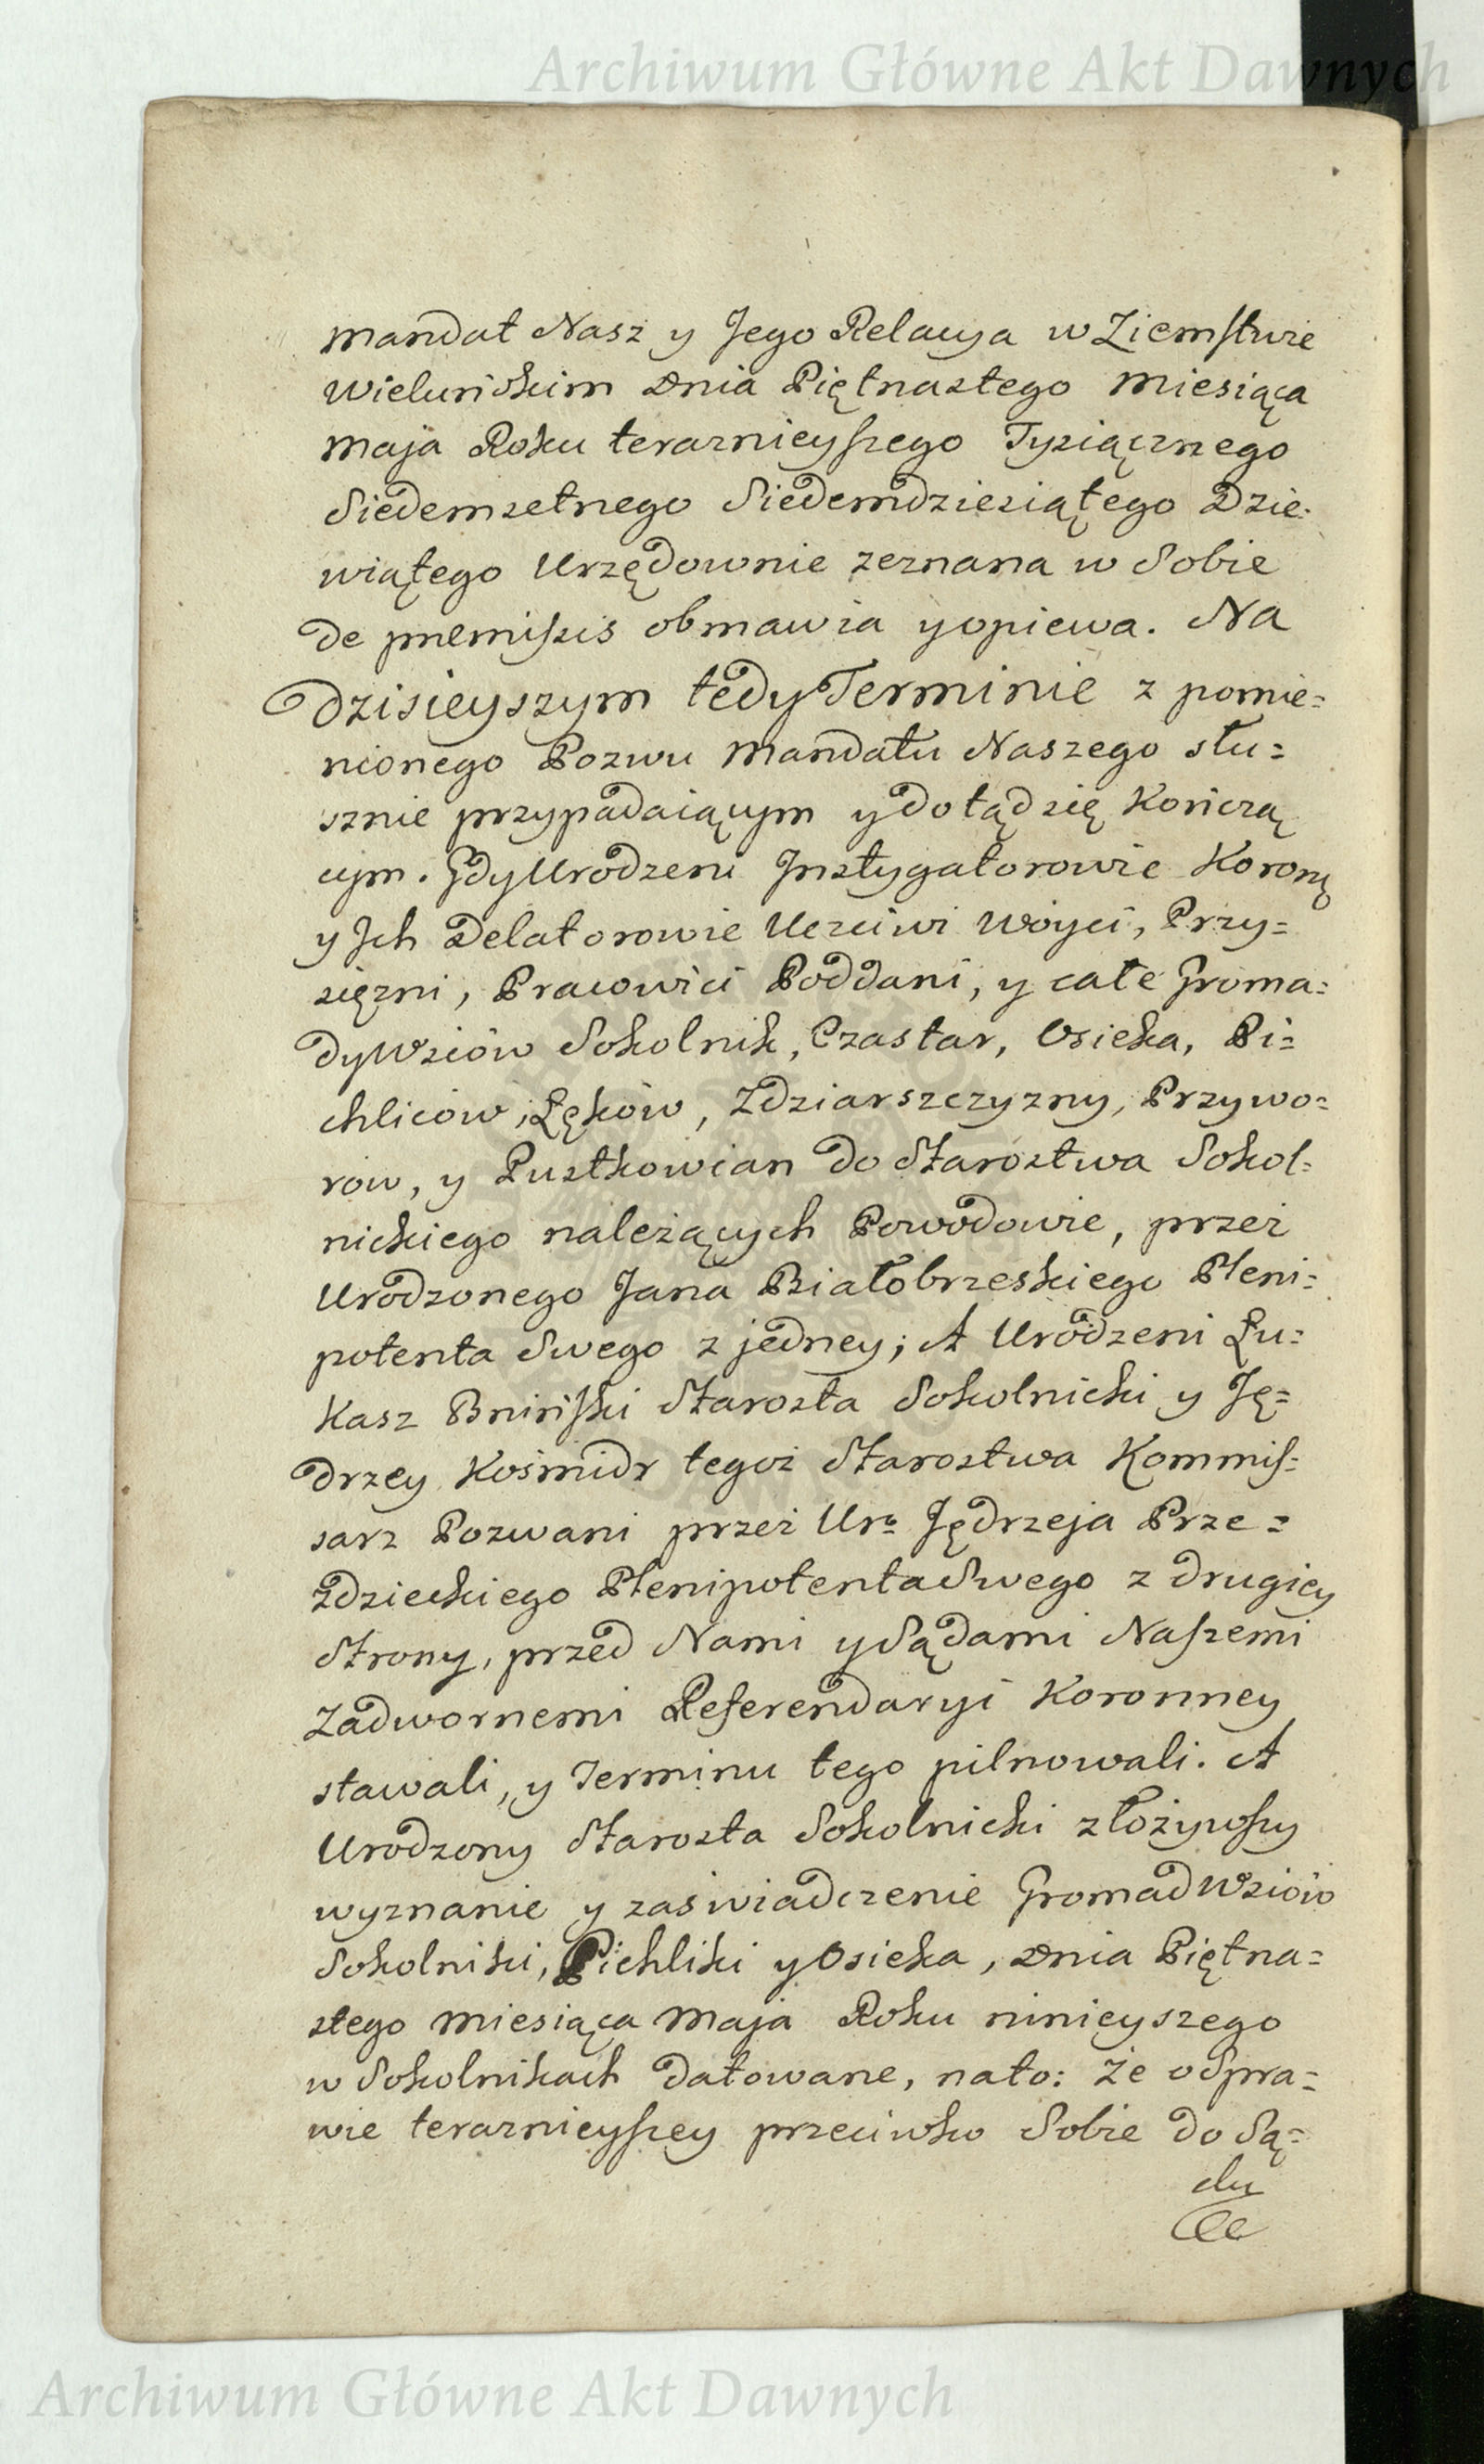 Archiwum Główne Akt Dawnych
mandat Nasz y Jego Relacya w Ziemstwie
Wieluńskim Dnia Piętnastego Miesiąca
Maja Roku terazniejszego Tysiącznego
Siedemsetnego Siedemdziesiątego Dzie-
wiątego Urzędownie zeznana w Sobie
de premissis obmawia y opiewa. Na
Dzisieyszym tedy Terminie z pomie=
nionego Pozwu Mandatu Naszego słu=
sznie przypadaiącym y dotąd się Kończą
cym. Gdy Urodzeni Instygatorowie Korony
y Jch Delatorowie Uczciwi Woyci, Przy=
sięzni, Pracowici Poddani, y całe Groma=
dy Wsiów Sokolnik, Czastar, Osieka, Pi=
chliców, Łęków, Zdziarszczyzny, Przywo=
row, y Pustkowian do Starostwa Sokol=
nickiego należących Powodowie, przez
Urodzonego Jana Białobrzeskiego Pleni=
potenta Swego z jedney; A Urodzeni Łu=
kasz Bniński Starosta Sokolnicki y Ję=
drzey Kośmidr tegoż Starostwa Kommis=
sarz Pozwani przez Ur: Jędrzeja Prze=
zdzieckiego Plenipotenta Swego z drugiey
Strony, przed Nami y Sądami Naszemi
Zadwornemi Referendaryi Koronney
stawali, y Terminu tego pilnowali. A
Urodzony Starosta Sokolnicki złożywszy
wyznanie y zaświadczenie Gromad Wsiów
Sokolniki, Pichliki y Osieka, Dnia Piętna=
stego Miesiąca Maja Roku ninieyszego
w Sokolnikach datowane, na to: że o Spra=
wie terazniejszey przeciwko Sobie do Są=
du
Archiwum Główne Akt Dawnych